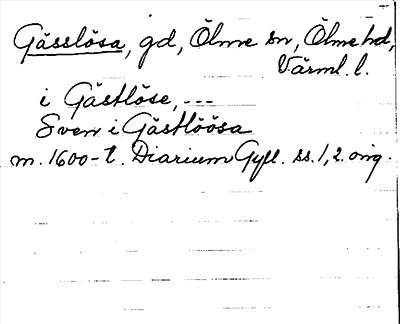 Gässlösa, gd, Ölme sn, Ölme hd,
Värml. l.
i Gästlöse, ---
Sven i Gästlöösa
m. 1600-t. Diarium Gyll. ss. 1, 2. orig.